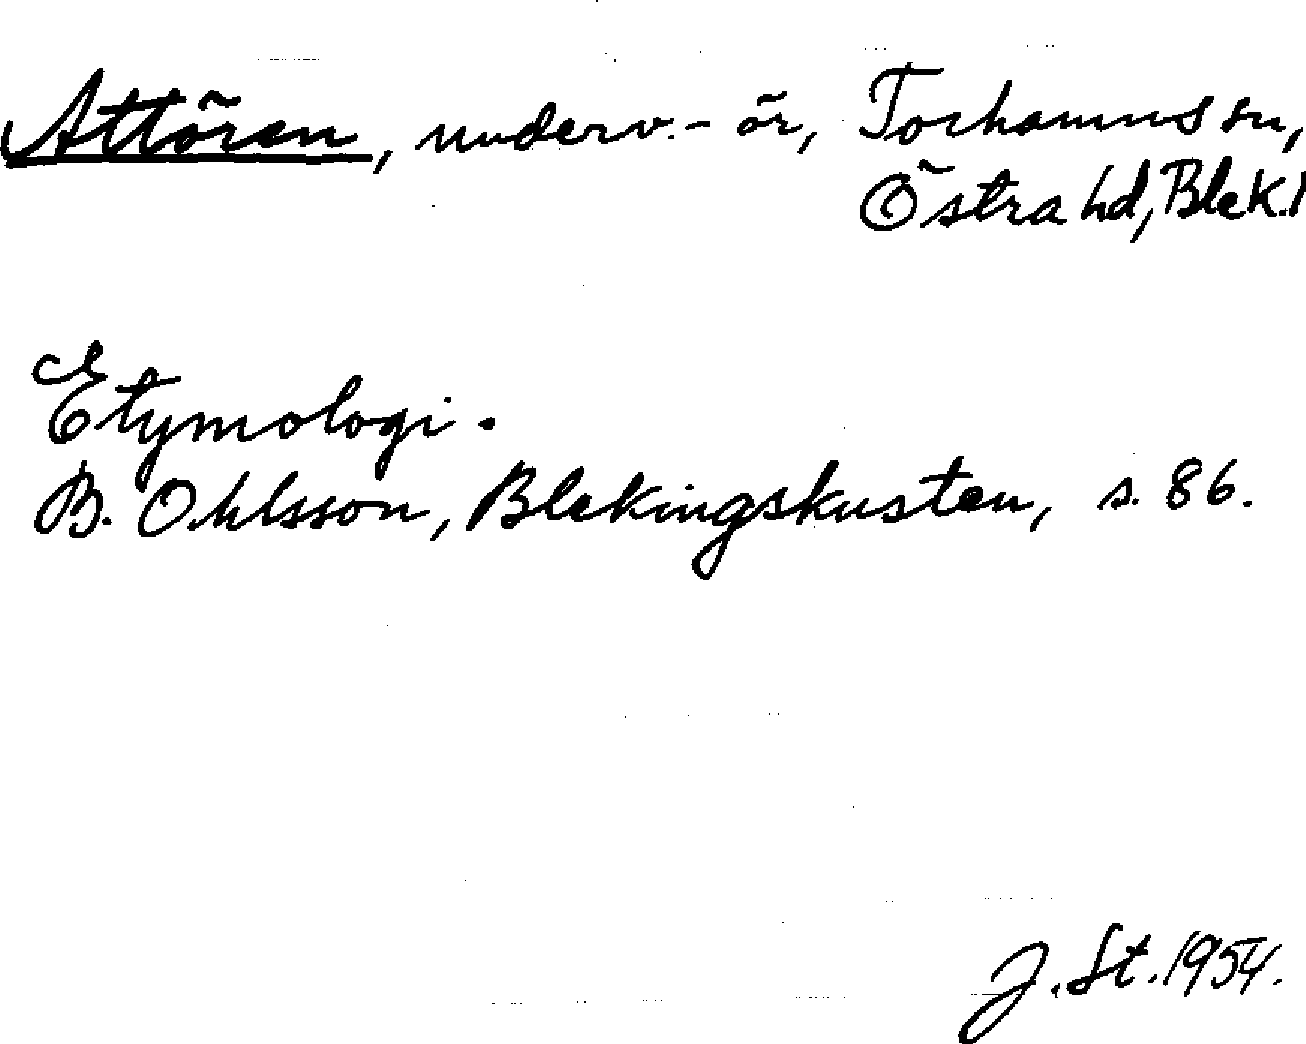 Attören, underv.- ör, Torhamns sn,
Östra hd, Blek.l
Etymologi.
B. Ohlsson, Blekingskusten, s. 86.
J. St. 1954.